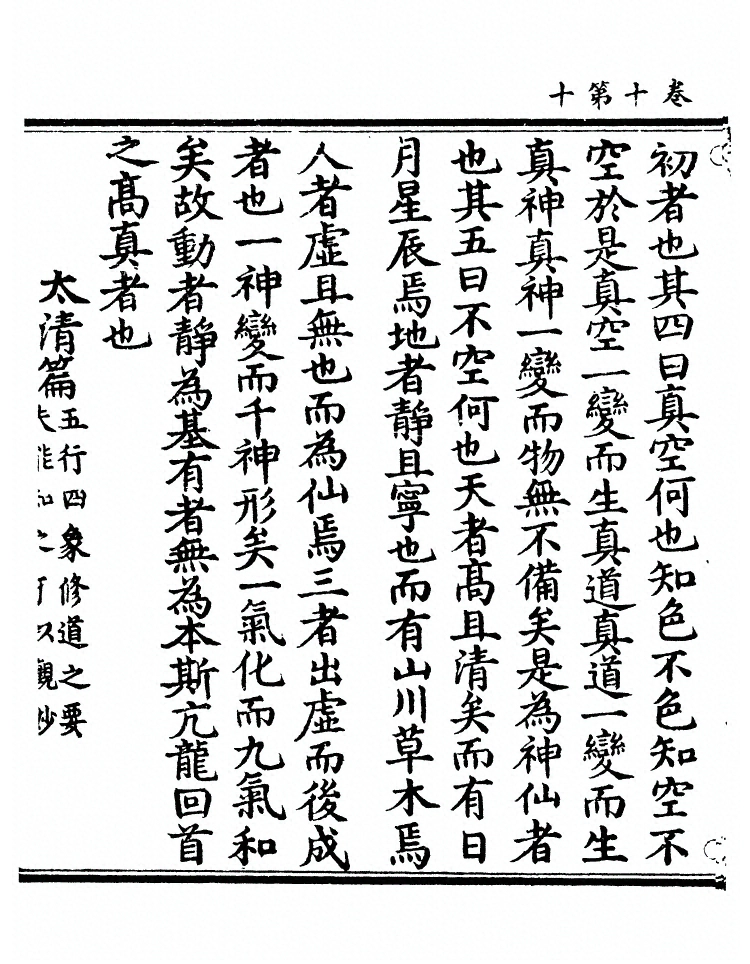 卷十第十
初者也其四曰真空何也知色不色知空不
空於是真空一變而生真道真道一變而生
真神真神一變而物無不備矣是為神仙者
也其五曰不空何也天者髙且清矣而有日
月星辰焉地者靜且寧也而有山川草木焉
人者虛且無也而為仙焉三者出虛而後成
者也一神變而千神形矣一氣化而九氣和
矣故動者靜為基有者無為本斯亢龍回首
之髙真者也
太清篇
五行四象修道之要
夫能知之可以觀妙